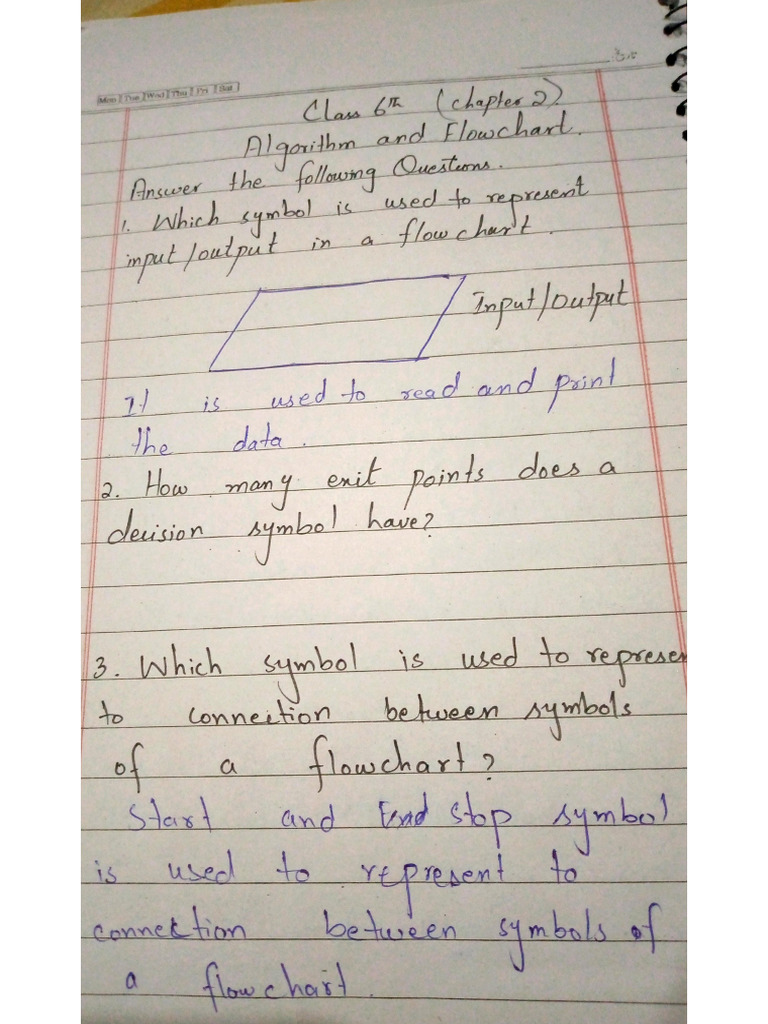 Mon Tue Wed Thu Fri Sat
Class 6th (chapter 2).
Algorithm and Flowchart.
Answer the following Questions.
1. Which symbol is used to represent
input/output in a flowchart.
Input/Output
It is used to read and print
the data.
2. How many exit points does a
decision symbol have?
3. Which symbol is used to represen
to connection between symbols
of a flowchart?
Start and End stop symbol
is used to represent to
connection between symbols of
a flowchart.